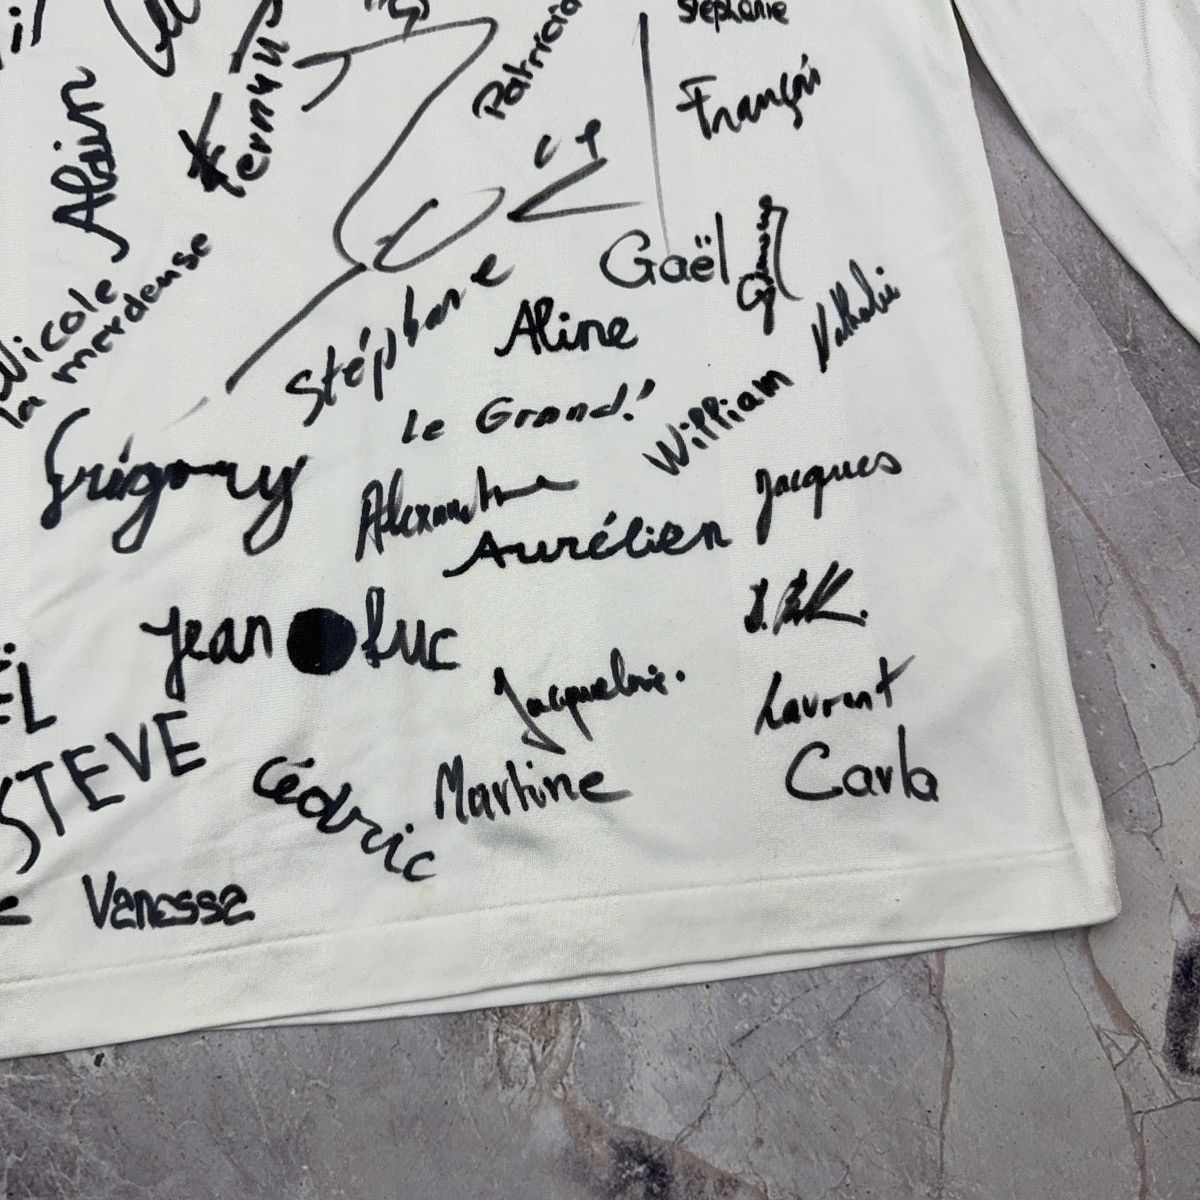 Stéphanie
Patricia
François
Alain
Nicole
la merdeuse
Gaël
Nathalie
Stéphane
Aline
le Grand!
William
Grégory
Jacques
Aurélien
Jean luc
Jacqueline.
Laurent
STEVE
Cédric
Martine
Carla
Vanessa